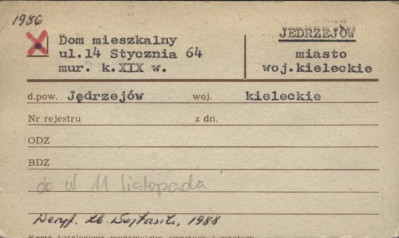 1986
Dom mieszkalny
ul.14 Stycznia 64
mur. k.XIX w.
JĘDRZEJÓW
miasto
woj.kieleckie
d.pow. Jędrzejów woj. kieleckie
Nr rejestru z dn.
ODZ
BDZ
11 listopada
1988